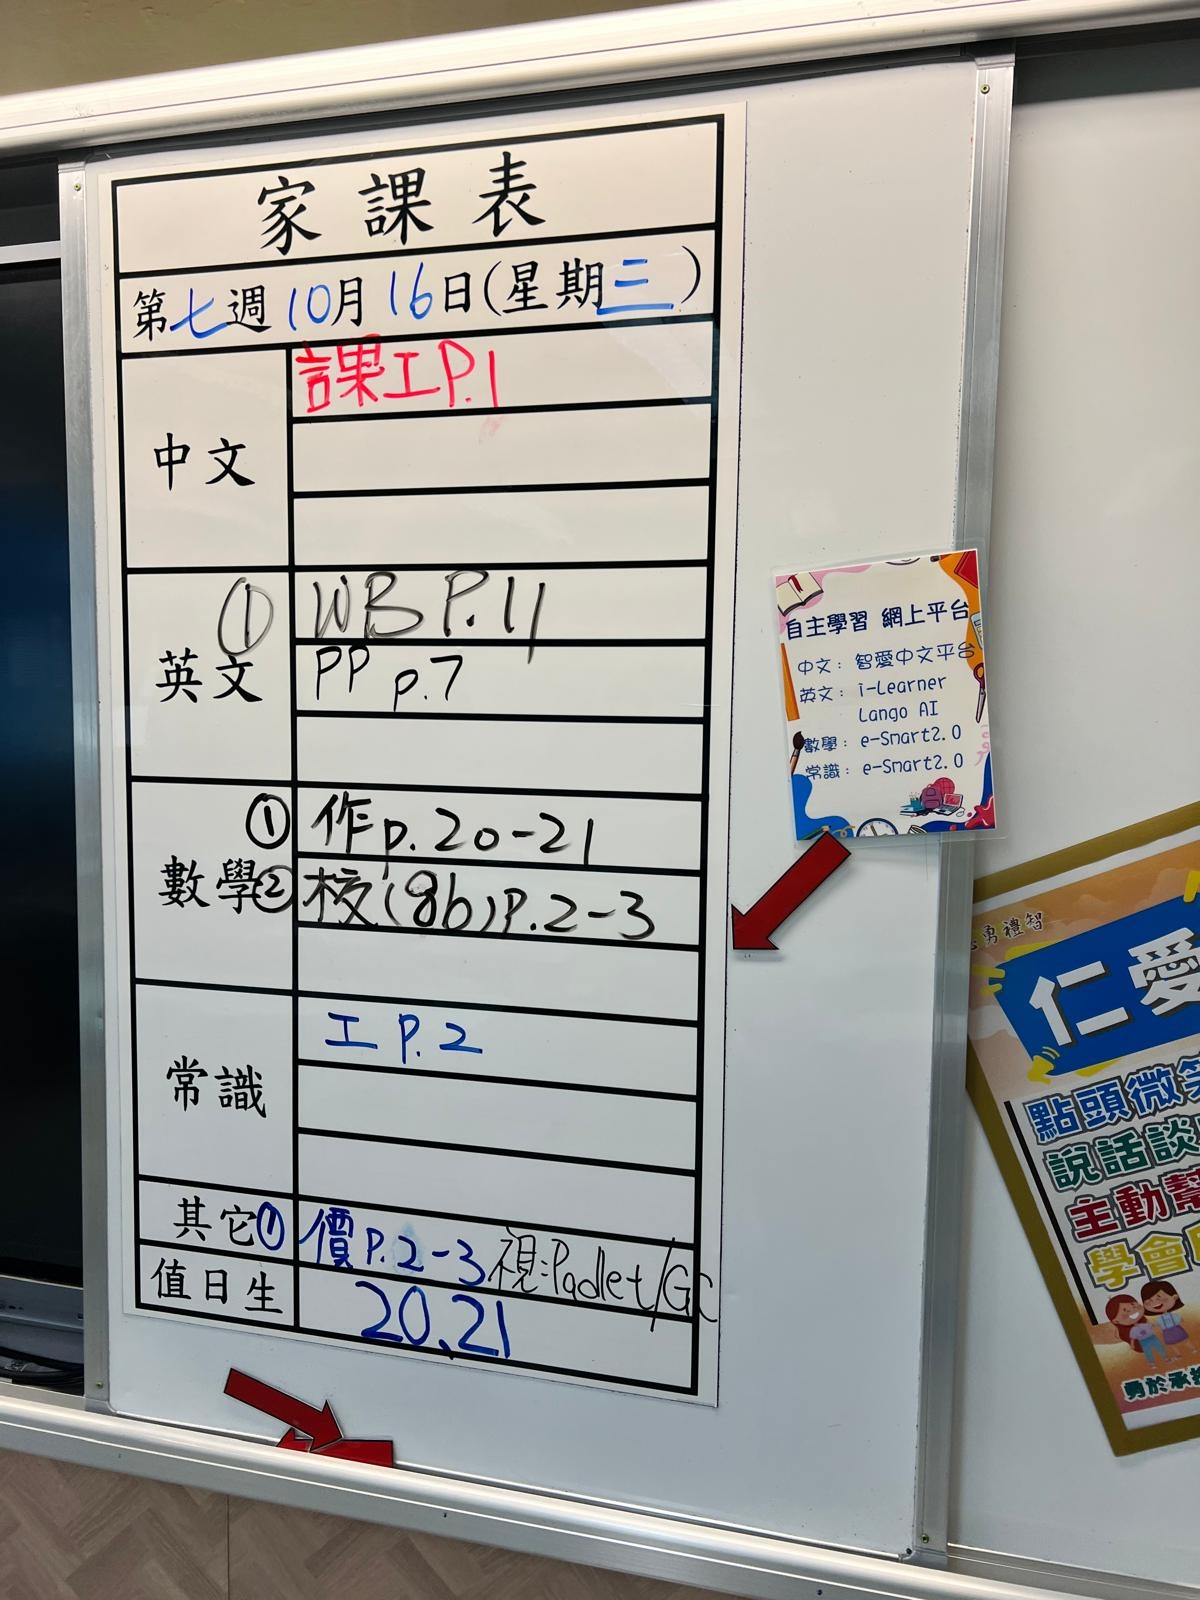 家課表
第七週10月16日(星期三)
中文
課工P.1
英文
① WB P.11
PP p.7
數學
① 作p.20-21
② 核(8b)P.2-3
常識
工 P.2
其它
① 價P.2-3 視:Padlet/GC
值日生
20、21
自主學習 網上平台
中文: 智愛中文平台
英文: i-Learner
Lango AI
數學: e-Smart2.0
常識: e-Smart2.0
勇禮智
仁愛
點頭微笑
說話談
主動幫
學會
勇於承